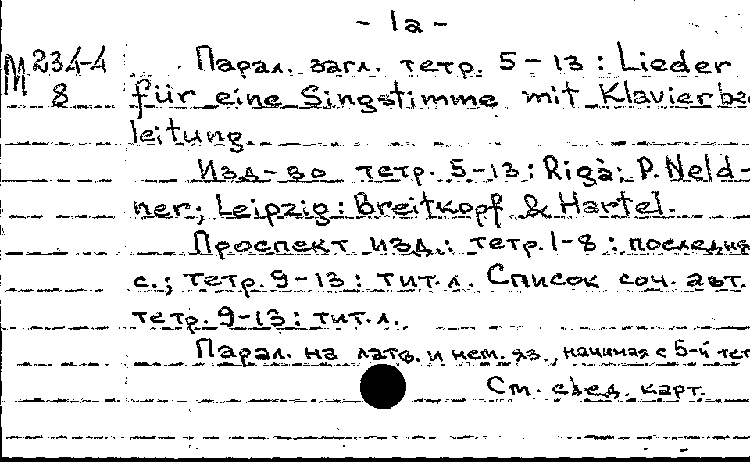 - 1a -
M 234-4
8
Парал. загл. тетр. 5-13 : Lieder
für eine Singstimme mit Klavierbe
leitung.
Изд-во тетр. 5-13 : Riga: P. Neld-
ner; Leipzig: Breitkopf & Härtel.
Проспект изд.: тетр. 1-8 : последня
с.; тетр. 9-13 : тит. л. Список соч. авт.
тетр. 9-13 : тит. л.
Парал. на латв. и нем. яз., начиная с 5-й тет
См. след. карт.